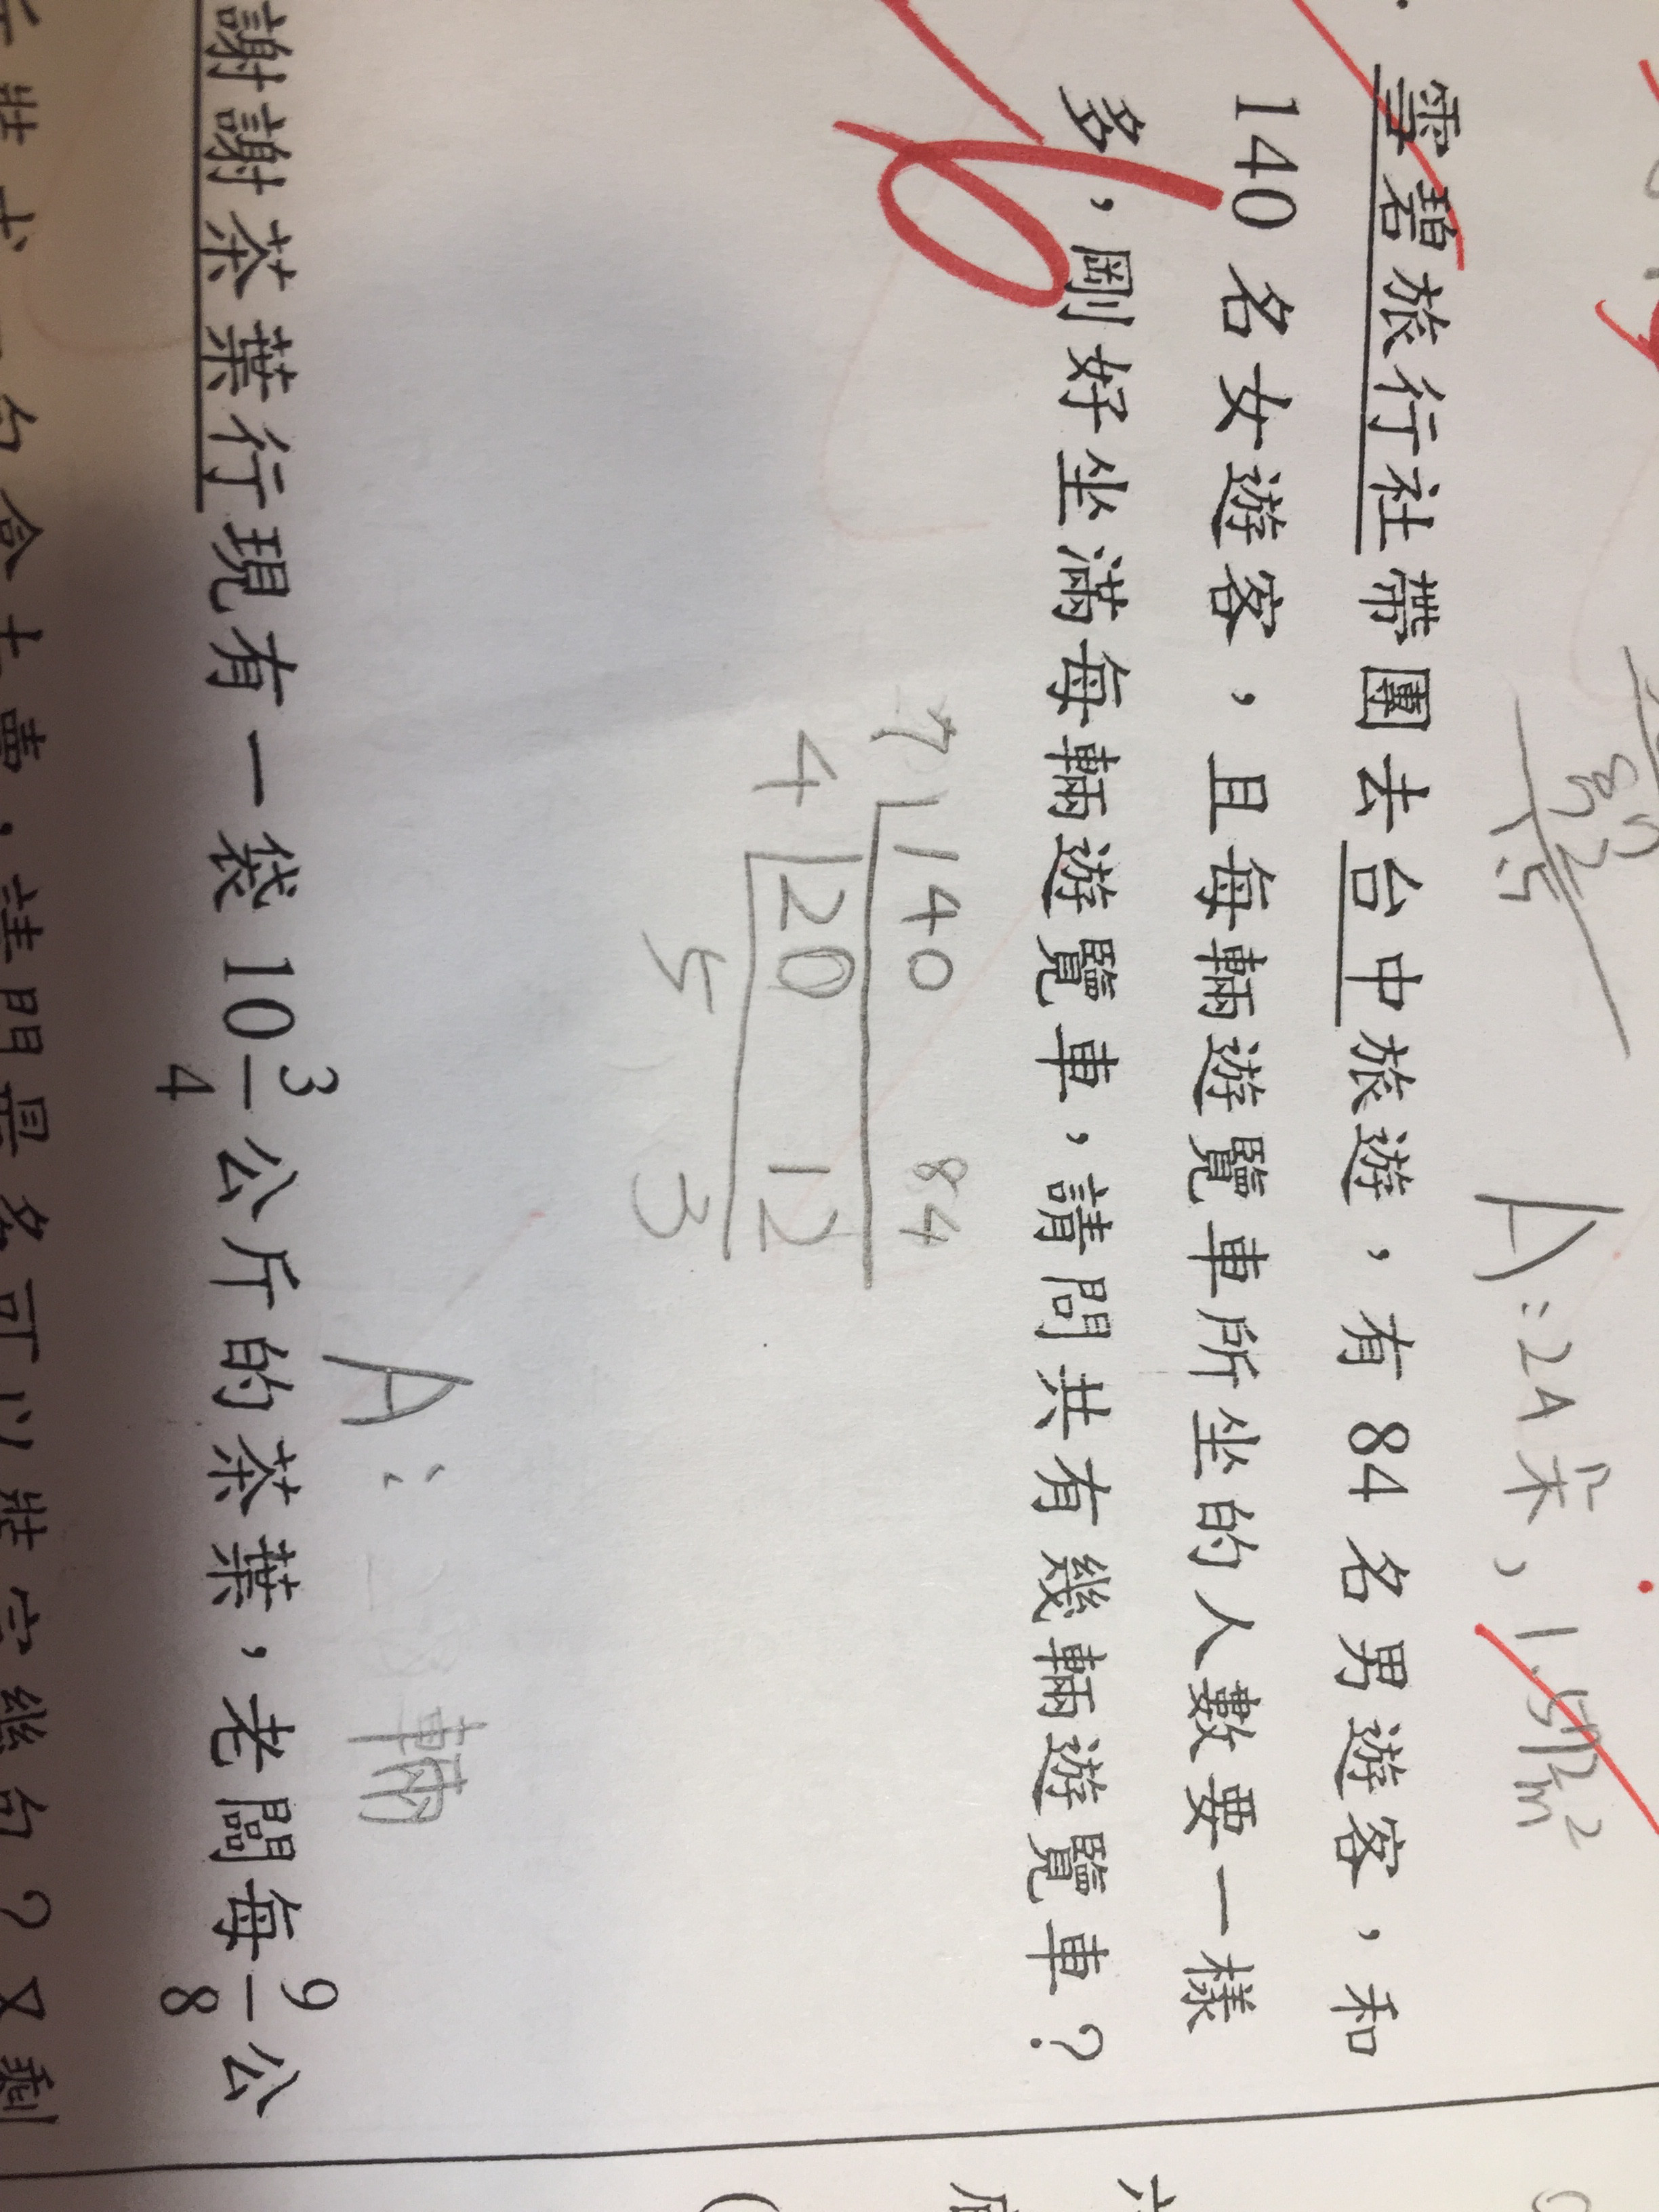 A:24朵，1.5
m²
雪碧旅行社帶團去台中旅遊，有84名男遊客，和
140名女遊客，且每輛遊覽車所坐的人數要一樣
多，剛好坐滿每輛遊覽車，請問共有幾輛遊覽車？
7 140 84
4 20 12
5 3
A: 輛
謝謝茶葉行現有一袋10 3/4公斤的茶葉，老闆每9/8公